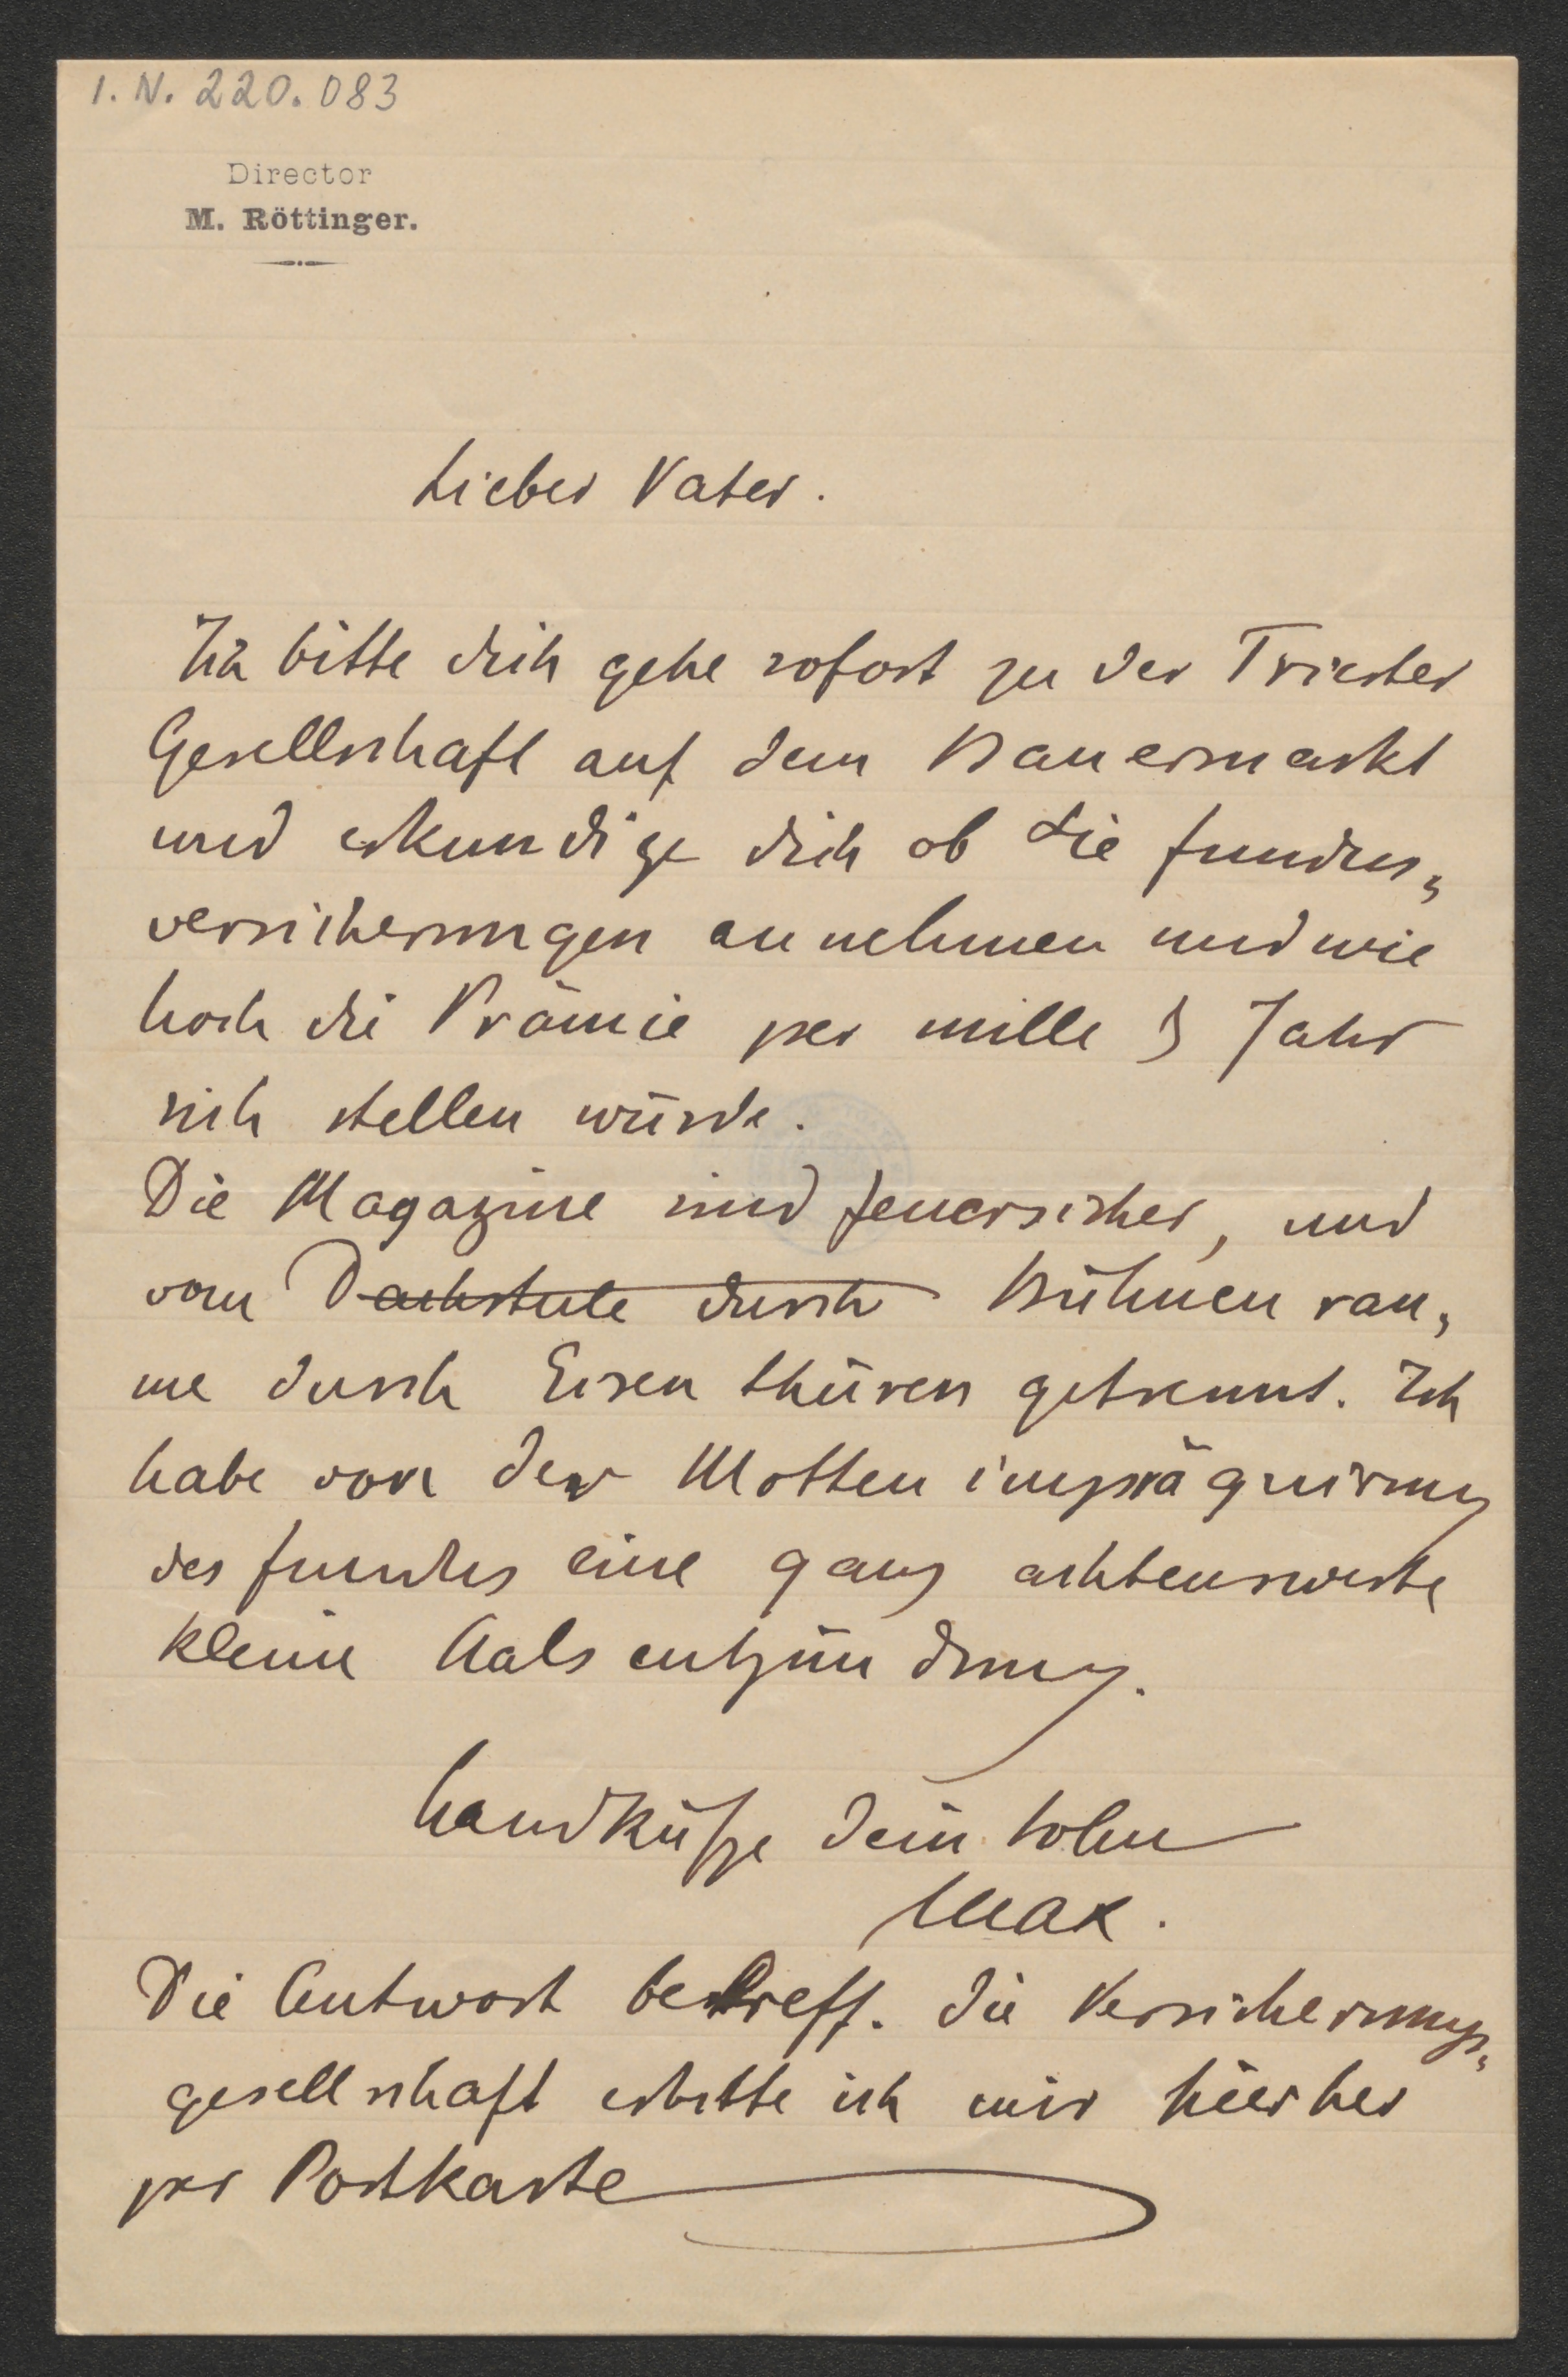 I. N. 220.083
Director
M. Röttinger.
Lieber Vater.
Ich bitte dich gehe sofort zu der Triester
Gesellschaft auf dem Bauermarkt
und erkundige dich ob die fundus„
versicherungen annehmen und wie
hoch die Prämie per mille Jahr
sich stellen würde.
Die Magazine sind feuersicher, und
vom Dachstule durch Bühnen rau„
me durch Eisen thüren getrennt. Ich
habe von der Motten imprägnirung
des fundus eine ganz achtenswerte
kleine Hals entzündung.
Handküße dein Sohn
Max.
Die Antwort betreff. die Versicherungs„
gesellschaft erbitte ich mir hierher
per Postkarte